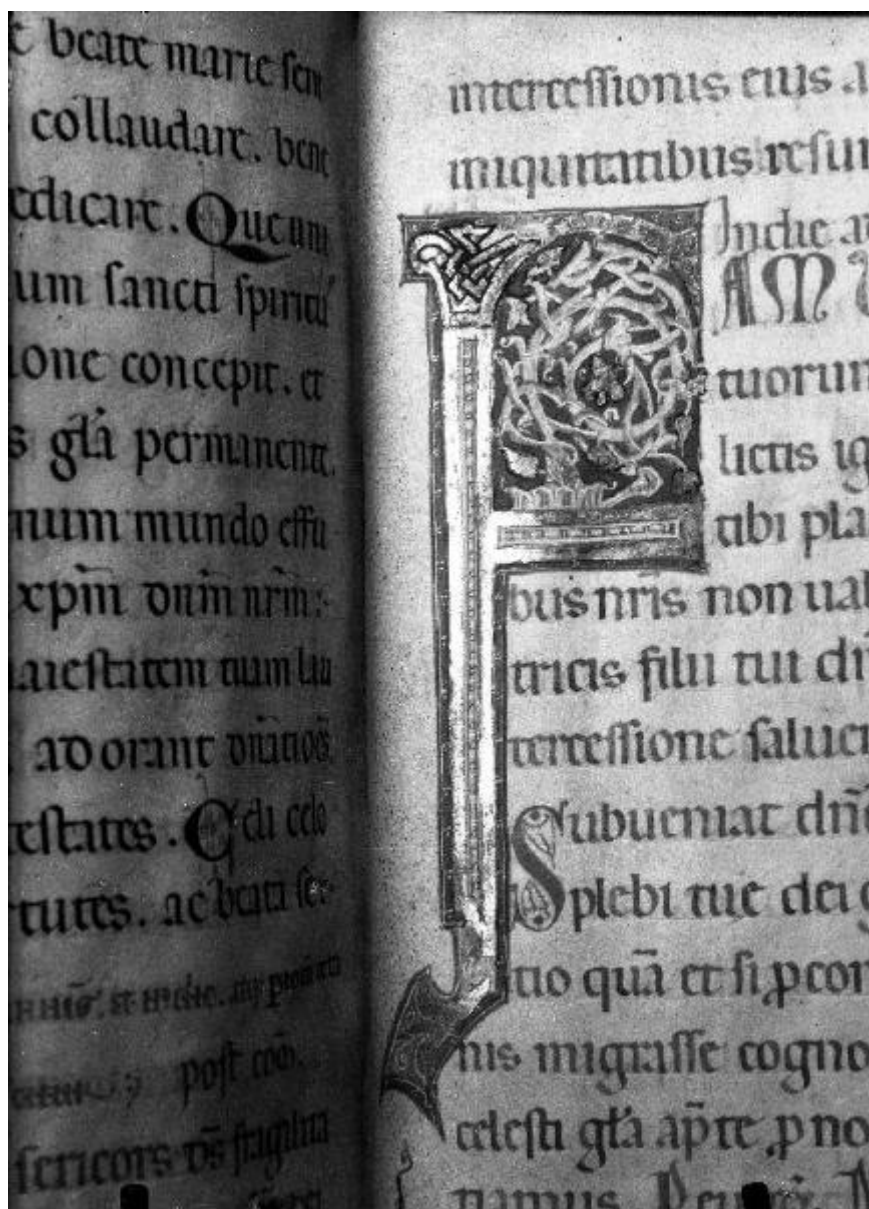 beate marie sem
collaudare. bene
edicare. Que cum
um sancti spiritu
one concepit. et
s gl̃a permanente.
num mundo effu
xp̃m dñm nr̃m:
maiestatem tuam lau
adorant dñatiões
testates. Celi celo
tutes. ac beati ser
post cõm.
sericors d̃s fragilita
intercessionis eius a
iniquitatibus resur
In die a
FAM
tuorum
lictis ig
tibi pla
bus nr̃is non ual
tricis filii tui dñ
tercessione saluem
Subueniat dñe
plebi tue dei g
tio quã et si ꝓ con
nis migrasse cogno
celesti gl̃a ap̃te ꝓ no
tiamus. Per